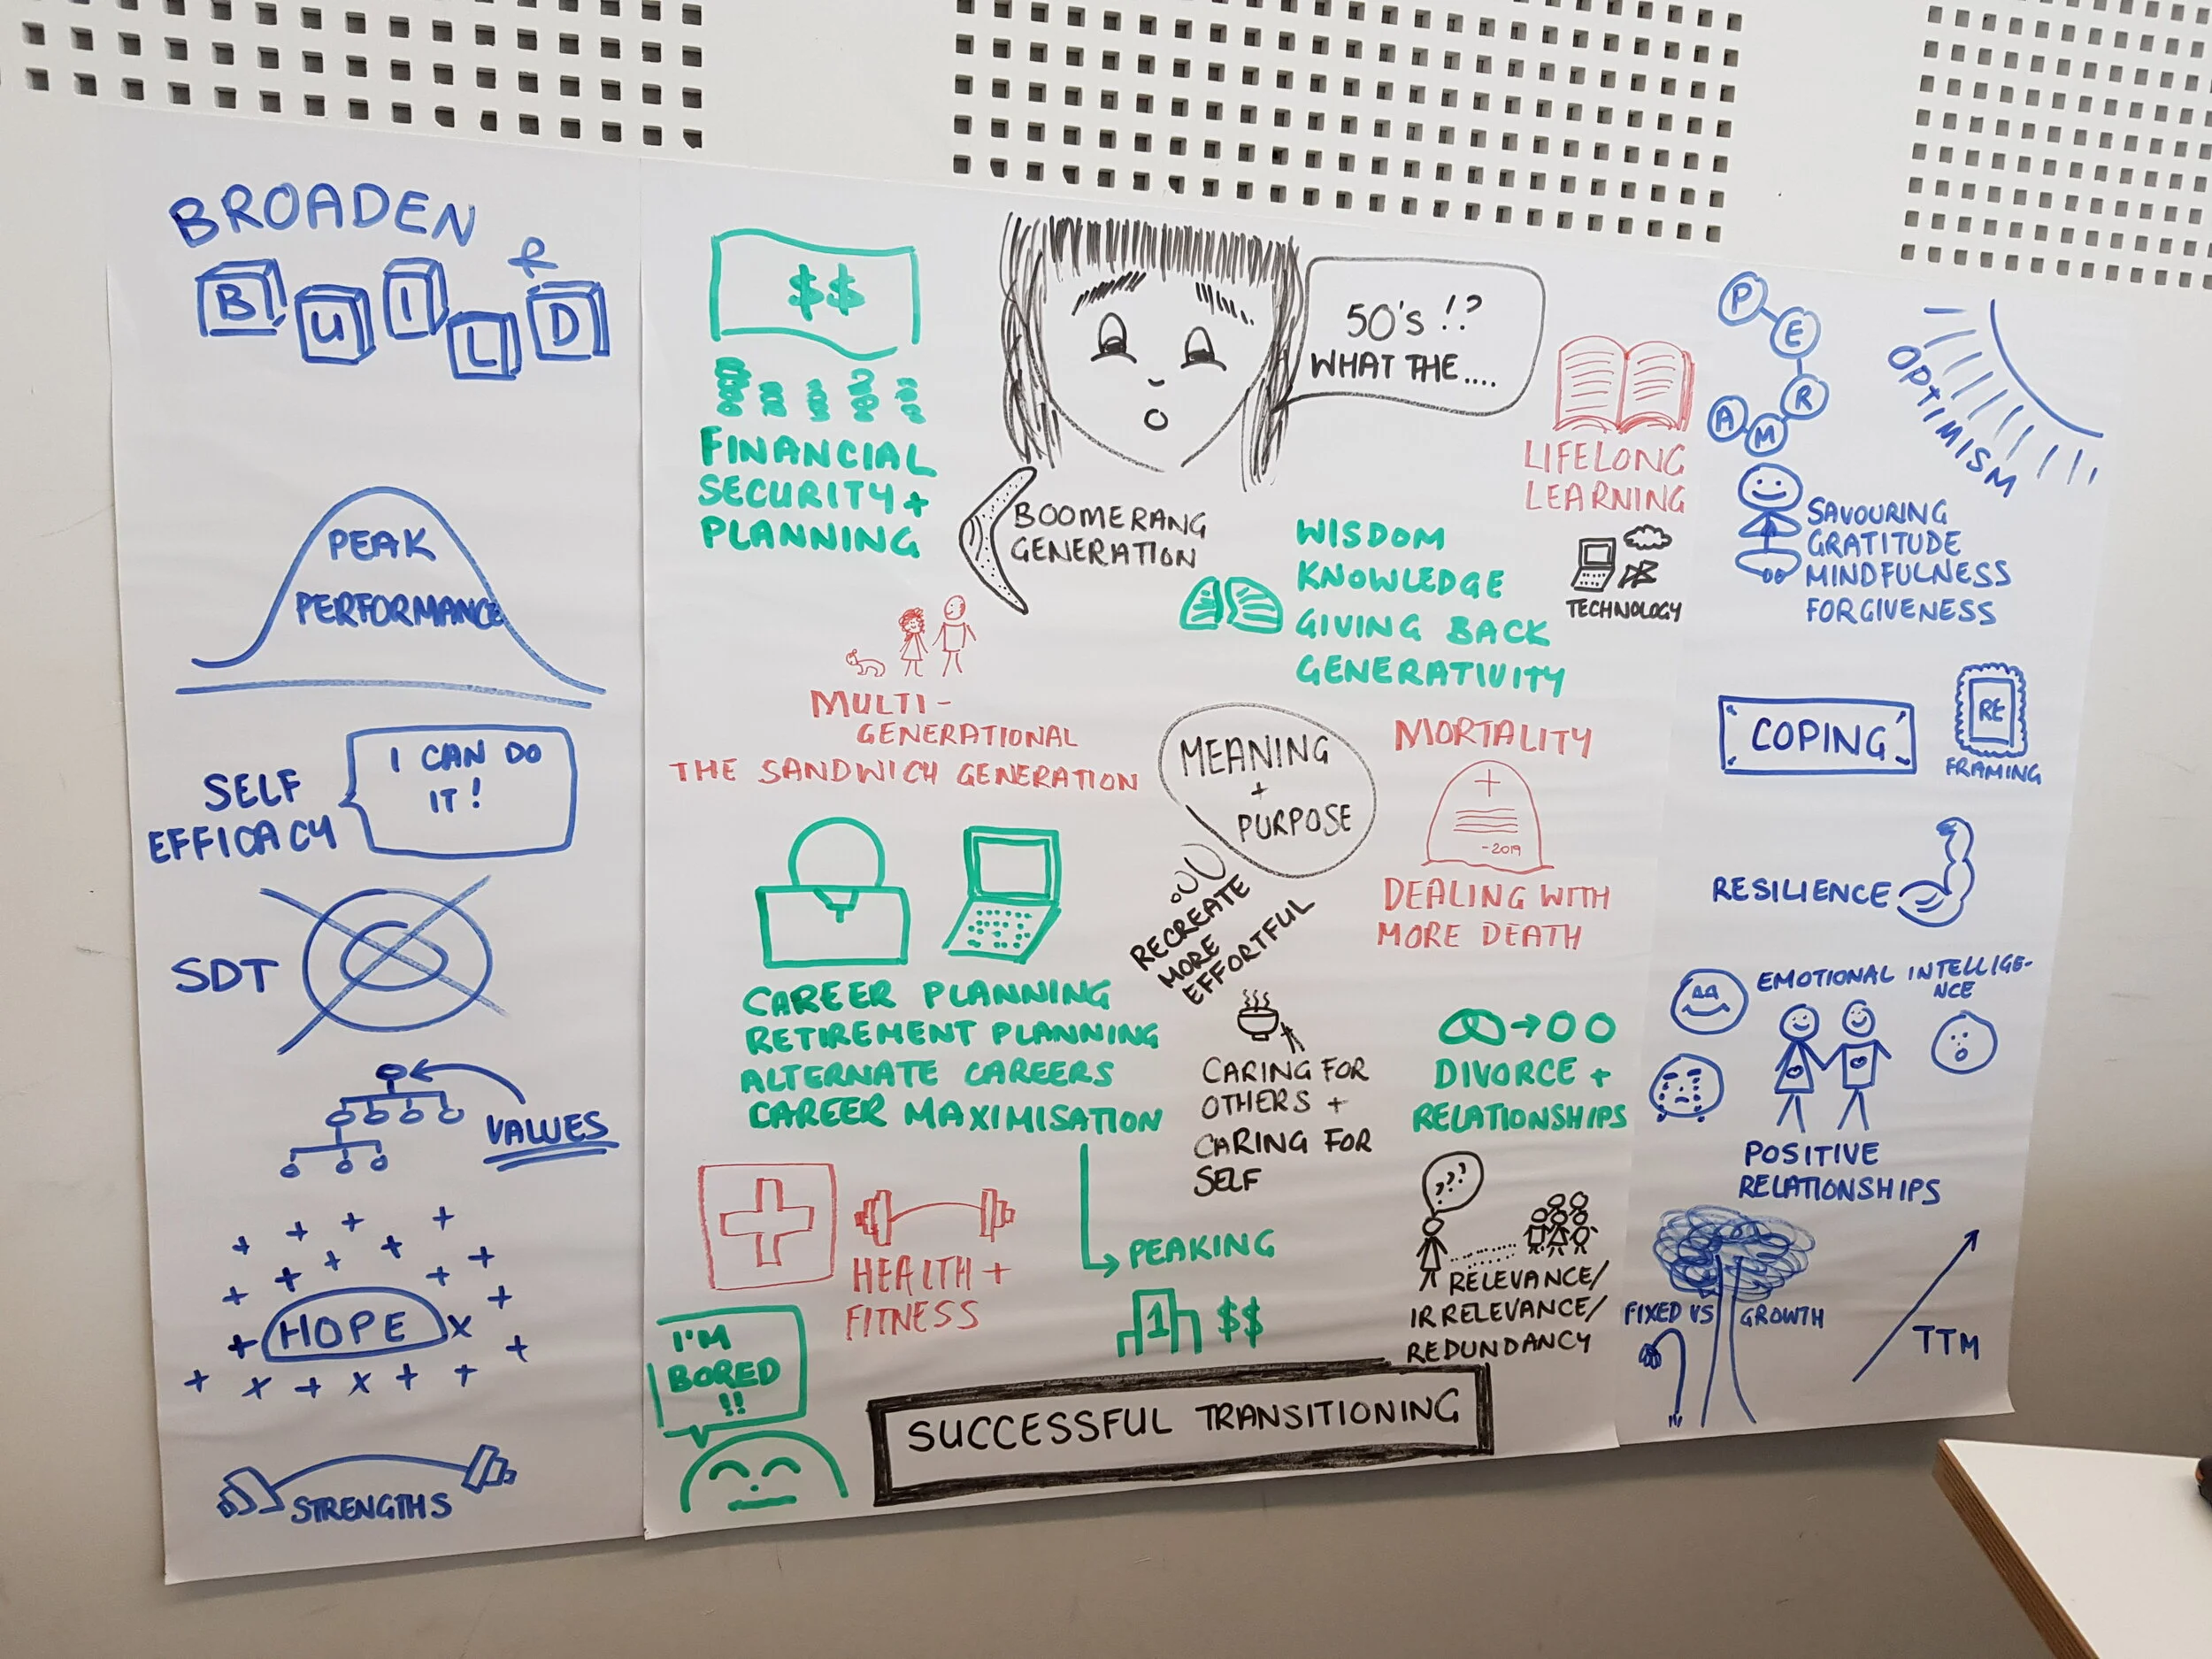 BROADEN
&
BUILD
PEAK
PERFORMANCE
SELF
EFFICACY
I CAN DO
IT!
SDT
VALUES
HOPE
STRENGTHS
$$
FINANCIAL
SECURITY +
PLANNING
50'S !?
WHAT THE....
BOOMERANG
GENERATION
LIFELONG
LEARNING
WISDOM
KNOWLEDGE
GIVING BACK
GENERATIVITY
TECHNOLOGY
MULTI-
GENERATIONAL
THE SANDWICH GENERATION
MEANING
+
PURPOSE
RECREATE
MORE
EFFORTFUL
MORTALITY
-2019
DEALING WITH
MORE DEATH
CAREER PLANNING
RETIREMENT PLANNING
ALTERNATE CAREERS
CAREER MAXIMISATION
CARING FOR
OTHERS +
CARING FOR
SELF
DIVORCE +
RELATIONSHIPS
HEALTH +
FITNESS
PEAKING
1 $$
???
RELEVANCE/
IRRELEVANCE/
REDUNDANCY
I'M
BORED
!!
SUCCESSFUL TRANSITIONING
PERMA
OPTIMISM
SAVOURING
GRATITUDE
MINDFULNESS
FORGIVENESS
COPING
RE
FRAMING
RESILIENCE
EMOTIONAL INTELLIGE-
NCE
POSITIVE
RELATIONSHIPS
FIXED VS GROWTH
TTM